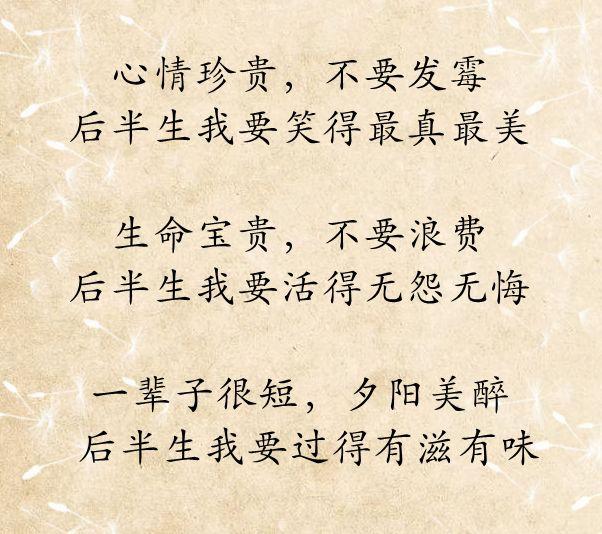 心情珍贵，不要发霉
后半生我要笑得最真最美
生命宝贵，不要浪费
后半生我要活得无怨无悔
一辈子很短，夕阳美醉
后半生我要过得有滋有味